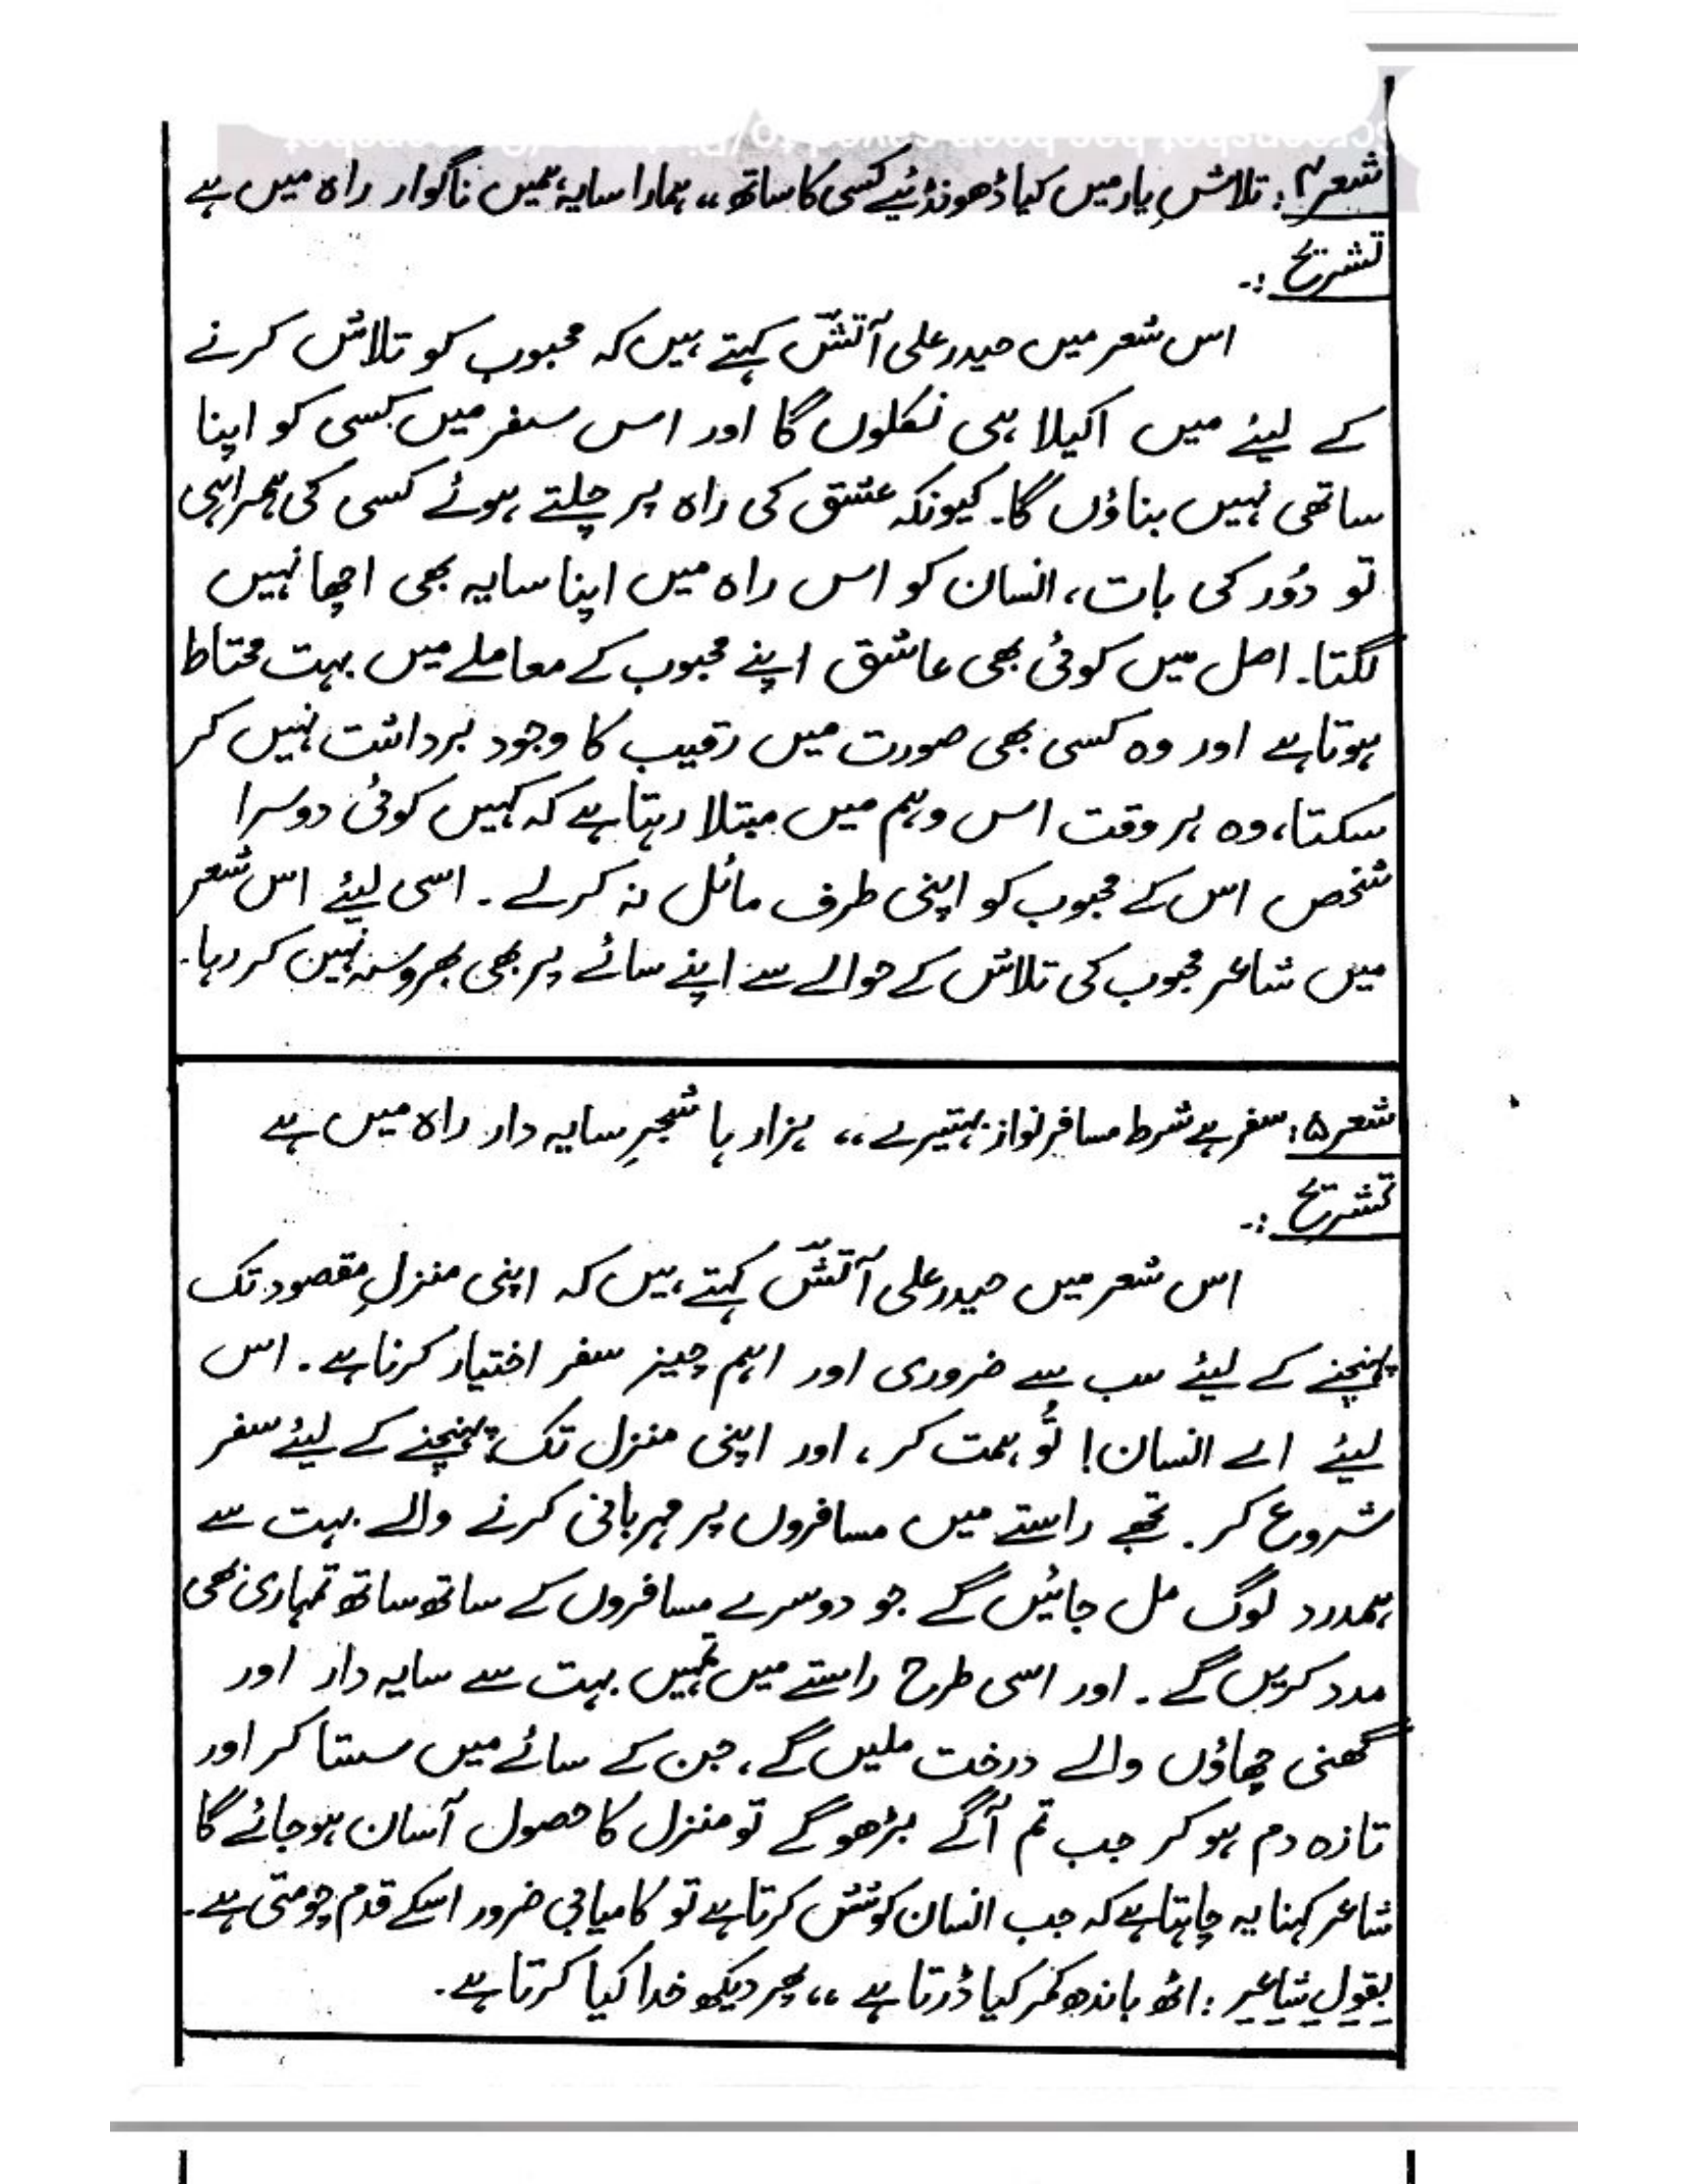 شعر۴: تلاشِ یار میں کیا ڈھونڈئیے کسی کا ساتھ ،، ہمارا سایہ ہمیں ناگوار راہ میں ہے
تشریح :-
اس شعر میں حیدر علی آتشؔ کہتے ہیں کہ محبوب کو تلاش کرنے
کے لیئے میں اکیلا ہی نکلوں گا اور اس سفر میں کسی کو اپنا
ساتھی نہیں بناؤں گا۔ کیونکہ عشق کی راہ پر چلتے ہوئے کسی کی ہمراہی
تو دُور کی بات، انسان کو اس راہ میں اپنا سایہ بھی اچھا نہیں
لگتا۔ اصل میں کوئی بھی عاشق اپنے محبوب کے معاملے میں بہت محتاط
ہوتا ہے اور وہ کسی بھی صورت میں رقیب کا وجود برداشت نہیں کر
سکتا، وہ ہر وقت اس وہم میں مبتلا رہتا ہے کہ کہیں کوئی دوسرا
شخص اس کے محبوب کو اپنی طرف مائل نہ کر لے ۔ اسی لیئے اس شعر
میں شاعر محبوب کی تلاش کے حوالے سے اپنے سائے پر بھی بھروسہ نہیں کر رہا۔
شعر۵: سفر ہے شرط مسافر نواز بہتیرے ،، ہزار ہا شجرِ سایہ دار راہ میں ہے
تشریح :-
اس شعر میں حیدر علی آتشؔ کہتے ہیں کہ اپنی منزلِ مقصود تک
پہنچنے کے لیئے سب سے ضروری اور اہم چیز سفر اختیار کرنا ہے ۔ اس
لیئے اے انسان! تُو ہمت کر ، اور اپنی منزل تک پہنچنے کے لیئے سفر
شروع کر ۔ تجھے راستے میں مسافروں پر مہربانی کرنے والے بہت سے
ہمدرد لوگ مل جائیں گے جو دوسرے مسافروں کے ساتھ ساتھ تمہاری بھی
مدد کریں گے ۔ اور اسی طرح راستے میں تمہیں بہت سے سایہ دار اور
گھنی چھاؤں والے درخت ملیں گے ، جن کے سائے میں سستا کر اور
تازہ دم ہو کر جب تم آگے بڑھو گے تو منزل کا حصول آسان ہو جائے گا
شاعر کہنا یہ چاہتا ہے کہ جب انسان کوشش کرتا ہے تو کامیابی ضرور اسکے قدم چومتی ہے۔
بقولِ شاعر : اٹھ باندھ کمر کیا ڈرتا ہے ،، پھر دیکھ خدا کیا کرتا ہے ۔